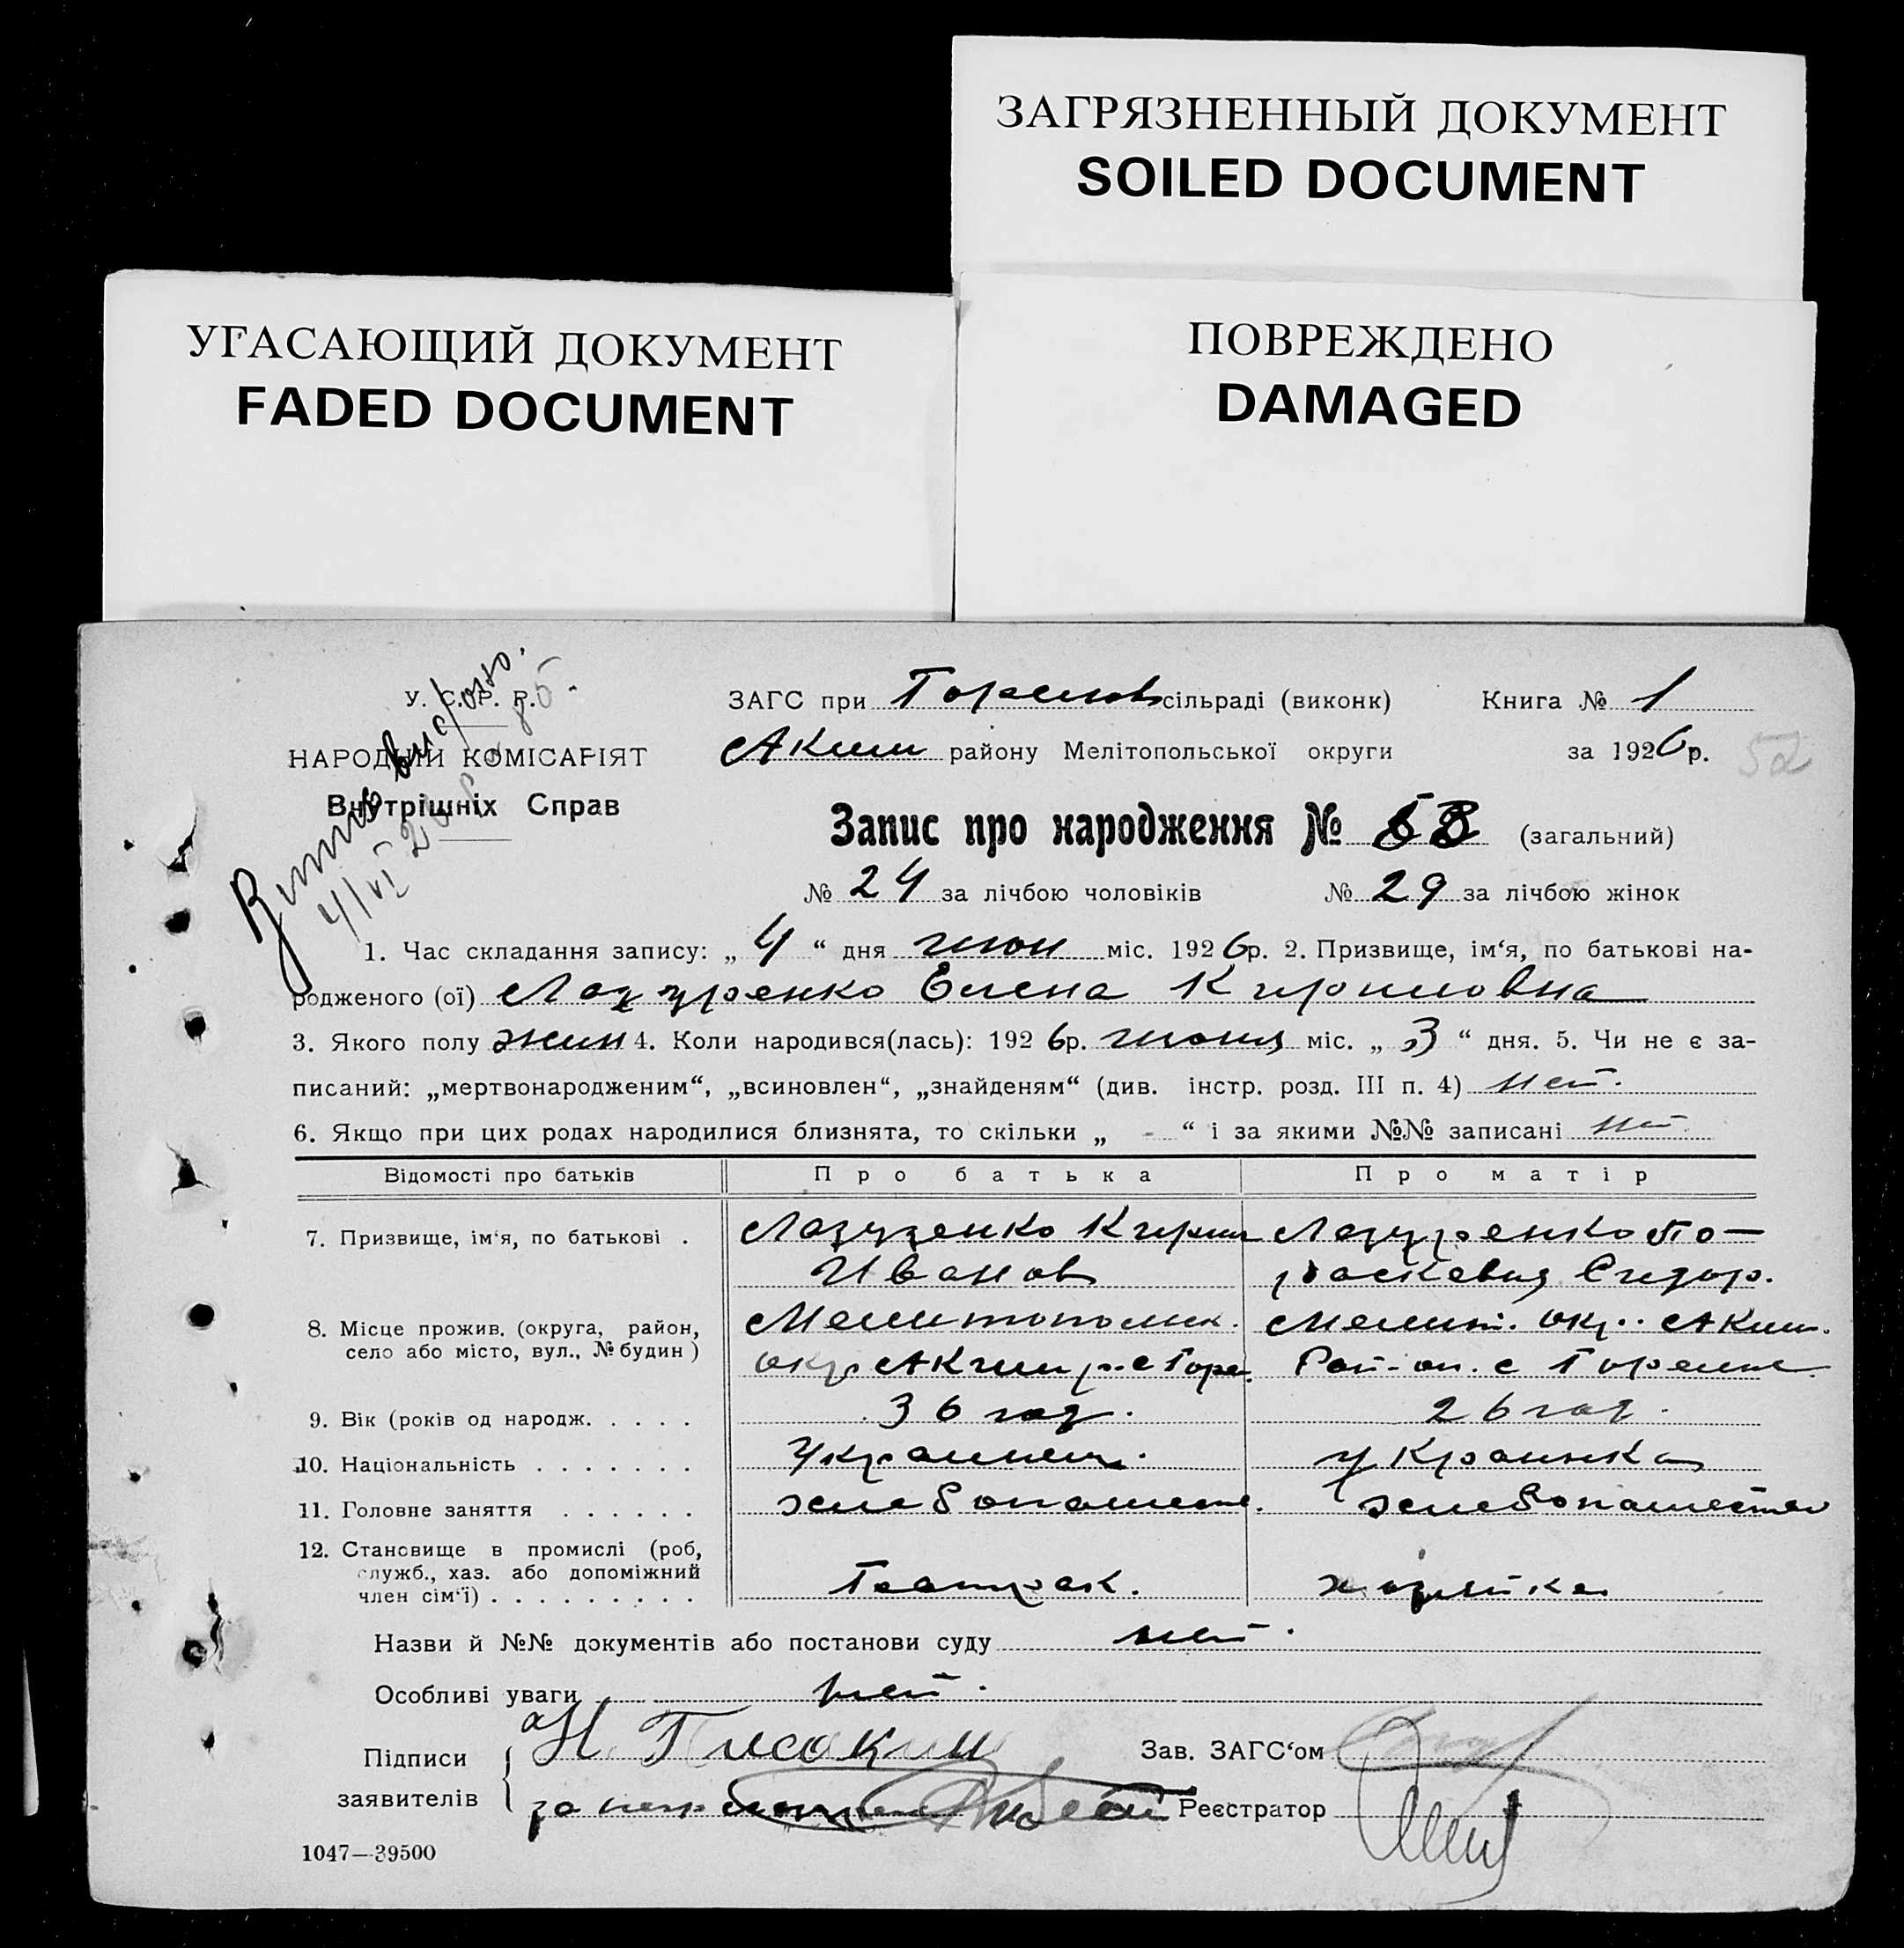 ЗАГРЯЗНЕННЫЙ ДОКУМЕНТ
SOILED DOCUMENT
УГАСАЮЩИЙ ДОКУМЕНТ
FADED DOCUMENT
ПОВРЕЖДЕНО
DAMAGED
У. С. Р. Р.
НАРОДНІЙ КОМІСАРІЯТ
Внутрішніх Справ
ЗАГС при Горелов сільраді (виконк) Книга № 1
Аким районy Мелітопольської округи за 1926 р. 52
Запис про народження № 53 (загальний)
№ 24 за лічбою чоловіків № 29 за лічбою жінок
1. Час складання запису: „ 4 “ дня июн міс. 1926 р. 2. Призвище, ім‘я, по батькові на-
родженого (ої) Лазуренко Елена Кириловна
3. Якого полу жин 4. Коли народився(лась): 1926 р. июня міс. „ 3 “ дня. 5. Чи не є за-
писаний: „мертвонародженим“, „всиновлен“, „знайденям“ (див. інстр. розд. III п. 4) нет.
6. Якщо при цих родах народилися близнята, то скільки „ - “ і за якими №№ записані нет.
Відомості про батьків Про батька Про матір
7. Призвище, ім‘я, по батькові . Лазуренко Кирил Лазуренко По—
Иванов раскевия Сидор.
8. Місце прожив. (округа, район, Мелитополик. Мелит. окр. Аким.
село або місто, вул., № будин) окр Аким р. с Горел. Рай-он. с Горелое
9. Вік (років од народж. . . . . 36 год. 26 год.
10. Національність . . . . . . . Украинец. украинка
11. Головне заняття . . . . . . хлебопашест. хлебопашество
12. Становище в промислі (роб,
служб., хаз. або допоміжний
член сім‘ї) . . . . . . . . . Батрак. хозяйка
Назви й №№ документів або постанови суду нет.
Особливі уваги нет.
Підписи Зав. ЗАГС‘ом
заявителів за негр Реєстратор
1047—39500